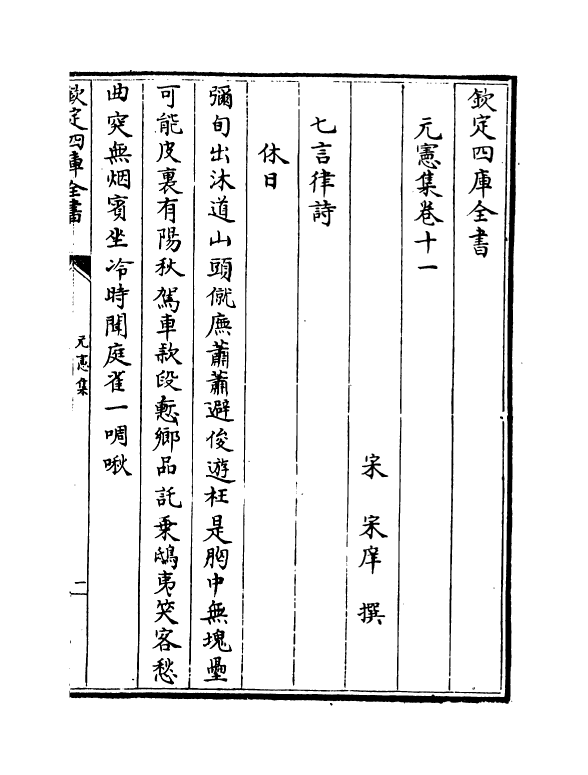 欽定四庫全書
元憲集卷十一
宋 宋庠 撰
七言律詩
休日
彌旬出沐道山頭僦廡蕭蕭避俊遊枉是胸中無塊壘
可能皮裏有陽秋駕車款段慙鄉品託乗鴟夷笑客愁
曲突無烟賓坐冷時聞庭雀一啁啾
欽定四庫全書
元憲集
二